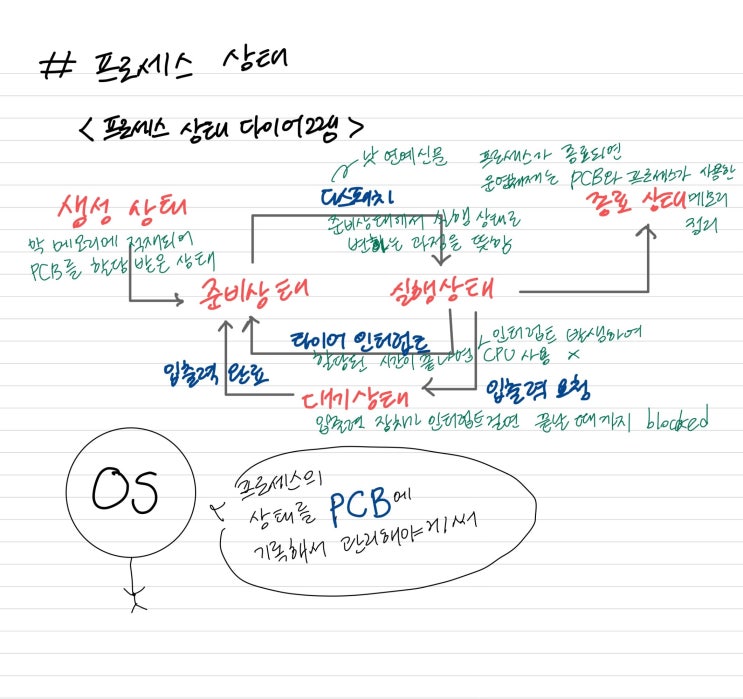 # 프로세스 상태
< 프로세스 상태 다이어그램 >
생성 상태
막 메모리에 적재되어
PCB를 할당 받은 상태
낫 연예신문
디스패치
준비상태에서 실행 상태로
변하는 과정을 뜻함
프로세스가 종료되면
운영체제는 PCB와 프로세스가 사용한
메모리
정리
종료 상태
준비상태
실행상태
타이머 인터럽트
할당된 시간이 끝나면
인터럽트 발생하여
CPU 사용 ×
입출력 완료
대기상태
입출력 요청
입출력 장치가 인터럽트걸면 끝날 때까지 blocked
OS
프로세스의
상태를 PCB에
기록해서 관리해야겠써